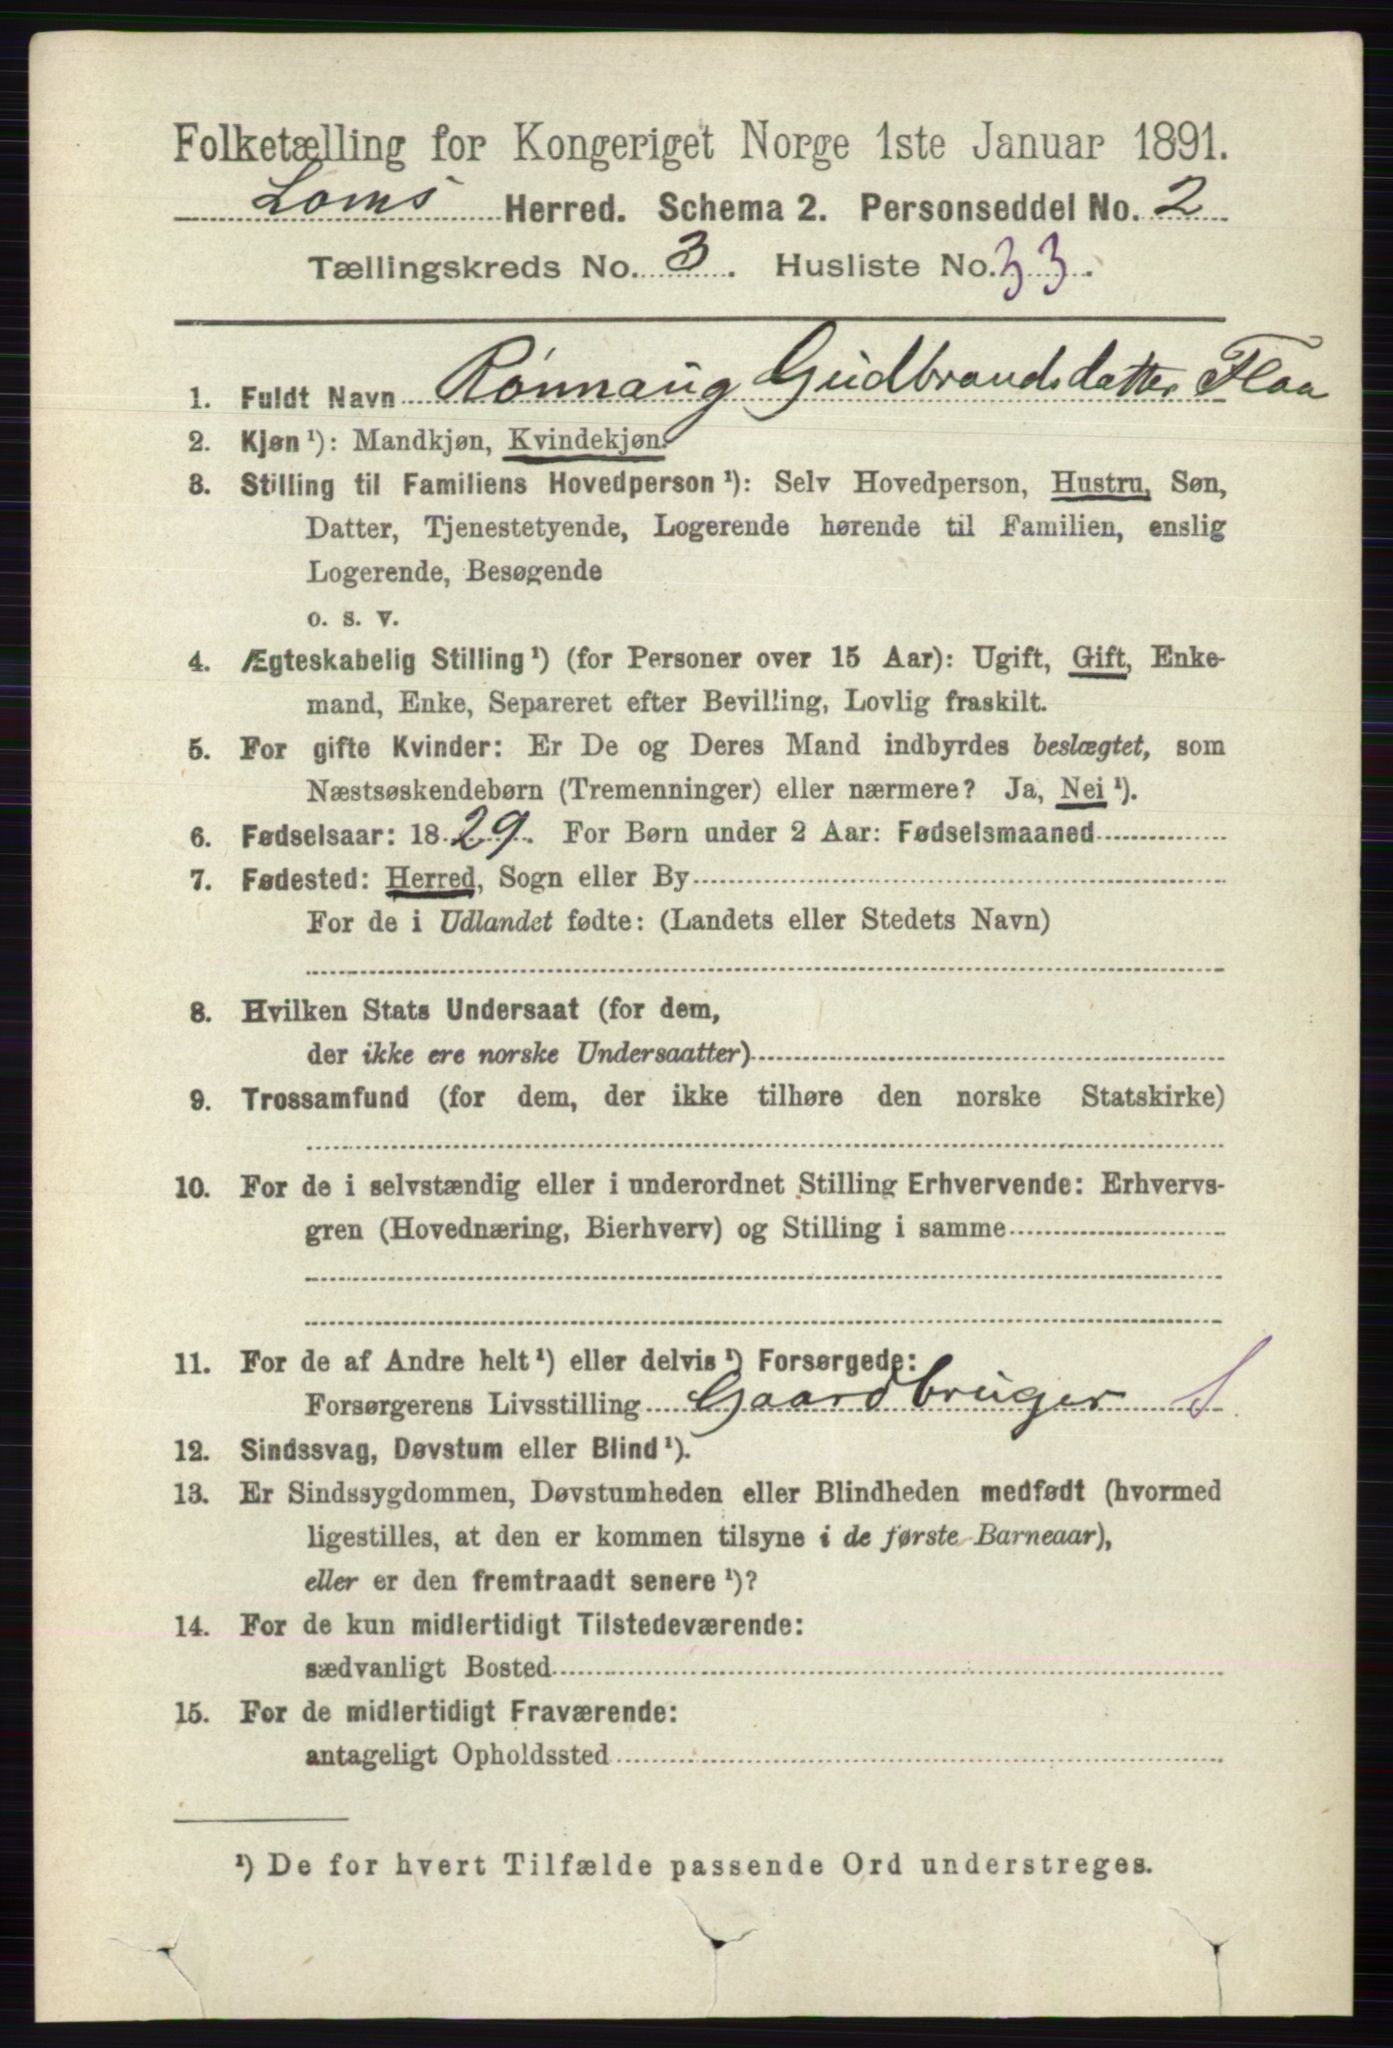 Folketælling for Kongeriget Norge 1ste Januar 1891.
Loms Herred. Schema 2. Personseddel No. 2
Tællingskreds No. 3. Husliste No. 33.
1. Fuldt Navn Rønnaug Gudbrandsdatter Flaa
2. Kjøn ¹): Mandkjøn, Kvindekjøn.
3. Stilling til Familiens Hovedperson ¹): Selv Hovedperson, Hustru, Søn,
Datter, Tjenestetyende, Logerende hørende til Familien, enslig
Logerende, Besøgende
o. s. v.
4. Ægteskabelig Stilling ¹) (for Personer over 15 Aar): Ugift, Gift, Enke-
mand, Enke, Separeret efter Bevilling, Lovlig fraskilt.
5. For gifte Kvinder: Er De og Deres Mand indbyrdes beslægtet, som
Næstsøskendebørn (Tremenninger) eller nærmere? Ja, Nei ¹).
6. Fødselsaar: 1829. For Børn under 2 Aar: Fødselsmaaned
7. Fødested: Herred, Sogn eller By
For de i Udlandet fødte: (Landets eller Stedets Navn)
8. Hvilken Stats Undersaat (for dem,
der ikke ere norske Undersaatter)
9. Trossamfund (for dem, der ikke tilhøre den norske Statskirke)
10. For de i selvstændig eller i underordnet Stilling Erhvervende: Erhvervs-
gren (Hovednæring, Bierhverv) og Stilling i samme
11. For de af Andre helt ¹) eller delvis ¹) Forsørgede:
Forsørgerens Livsstilling Gaardbruger S
12. Sindssvag, Døvstum eller Blind ¹).
13. Er Sindssygdommen, Døvstumheden eller Blindheden medfødt (hvormed
ligestilles, at den er kommen tilsyne i de første Barneaar),
eller er den fremtraadt senere ¹)?
14. For de kun midlertidigt Tilstedeværende:
sædvanligt Bosted
15. For de midlertidigt Fraværende:
antageligt Opholdssted
¹) De for hvert Tilfælde passende Ord understreges.